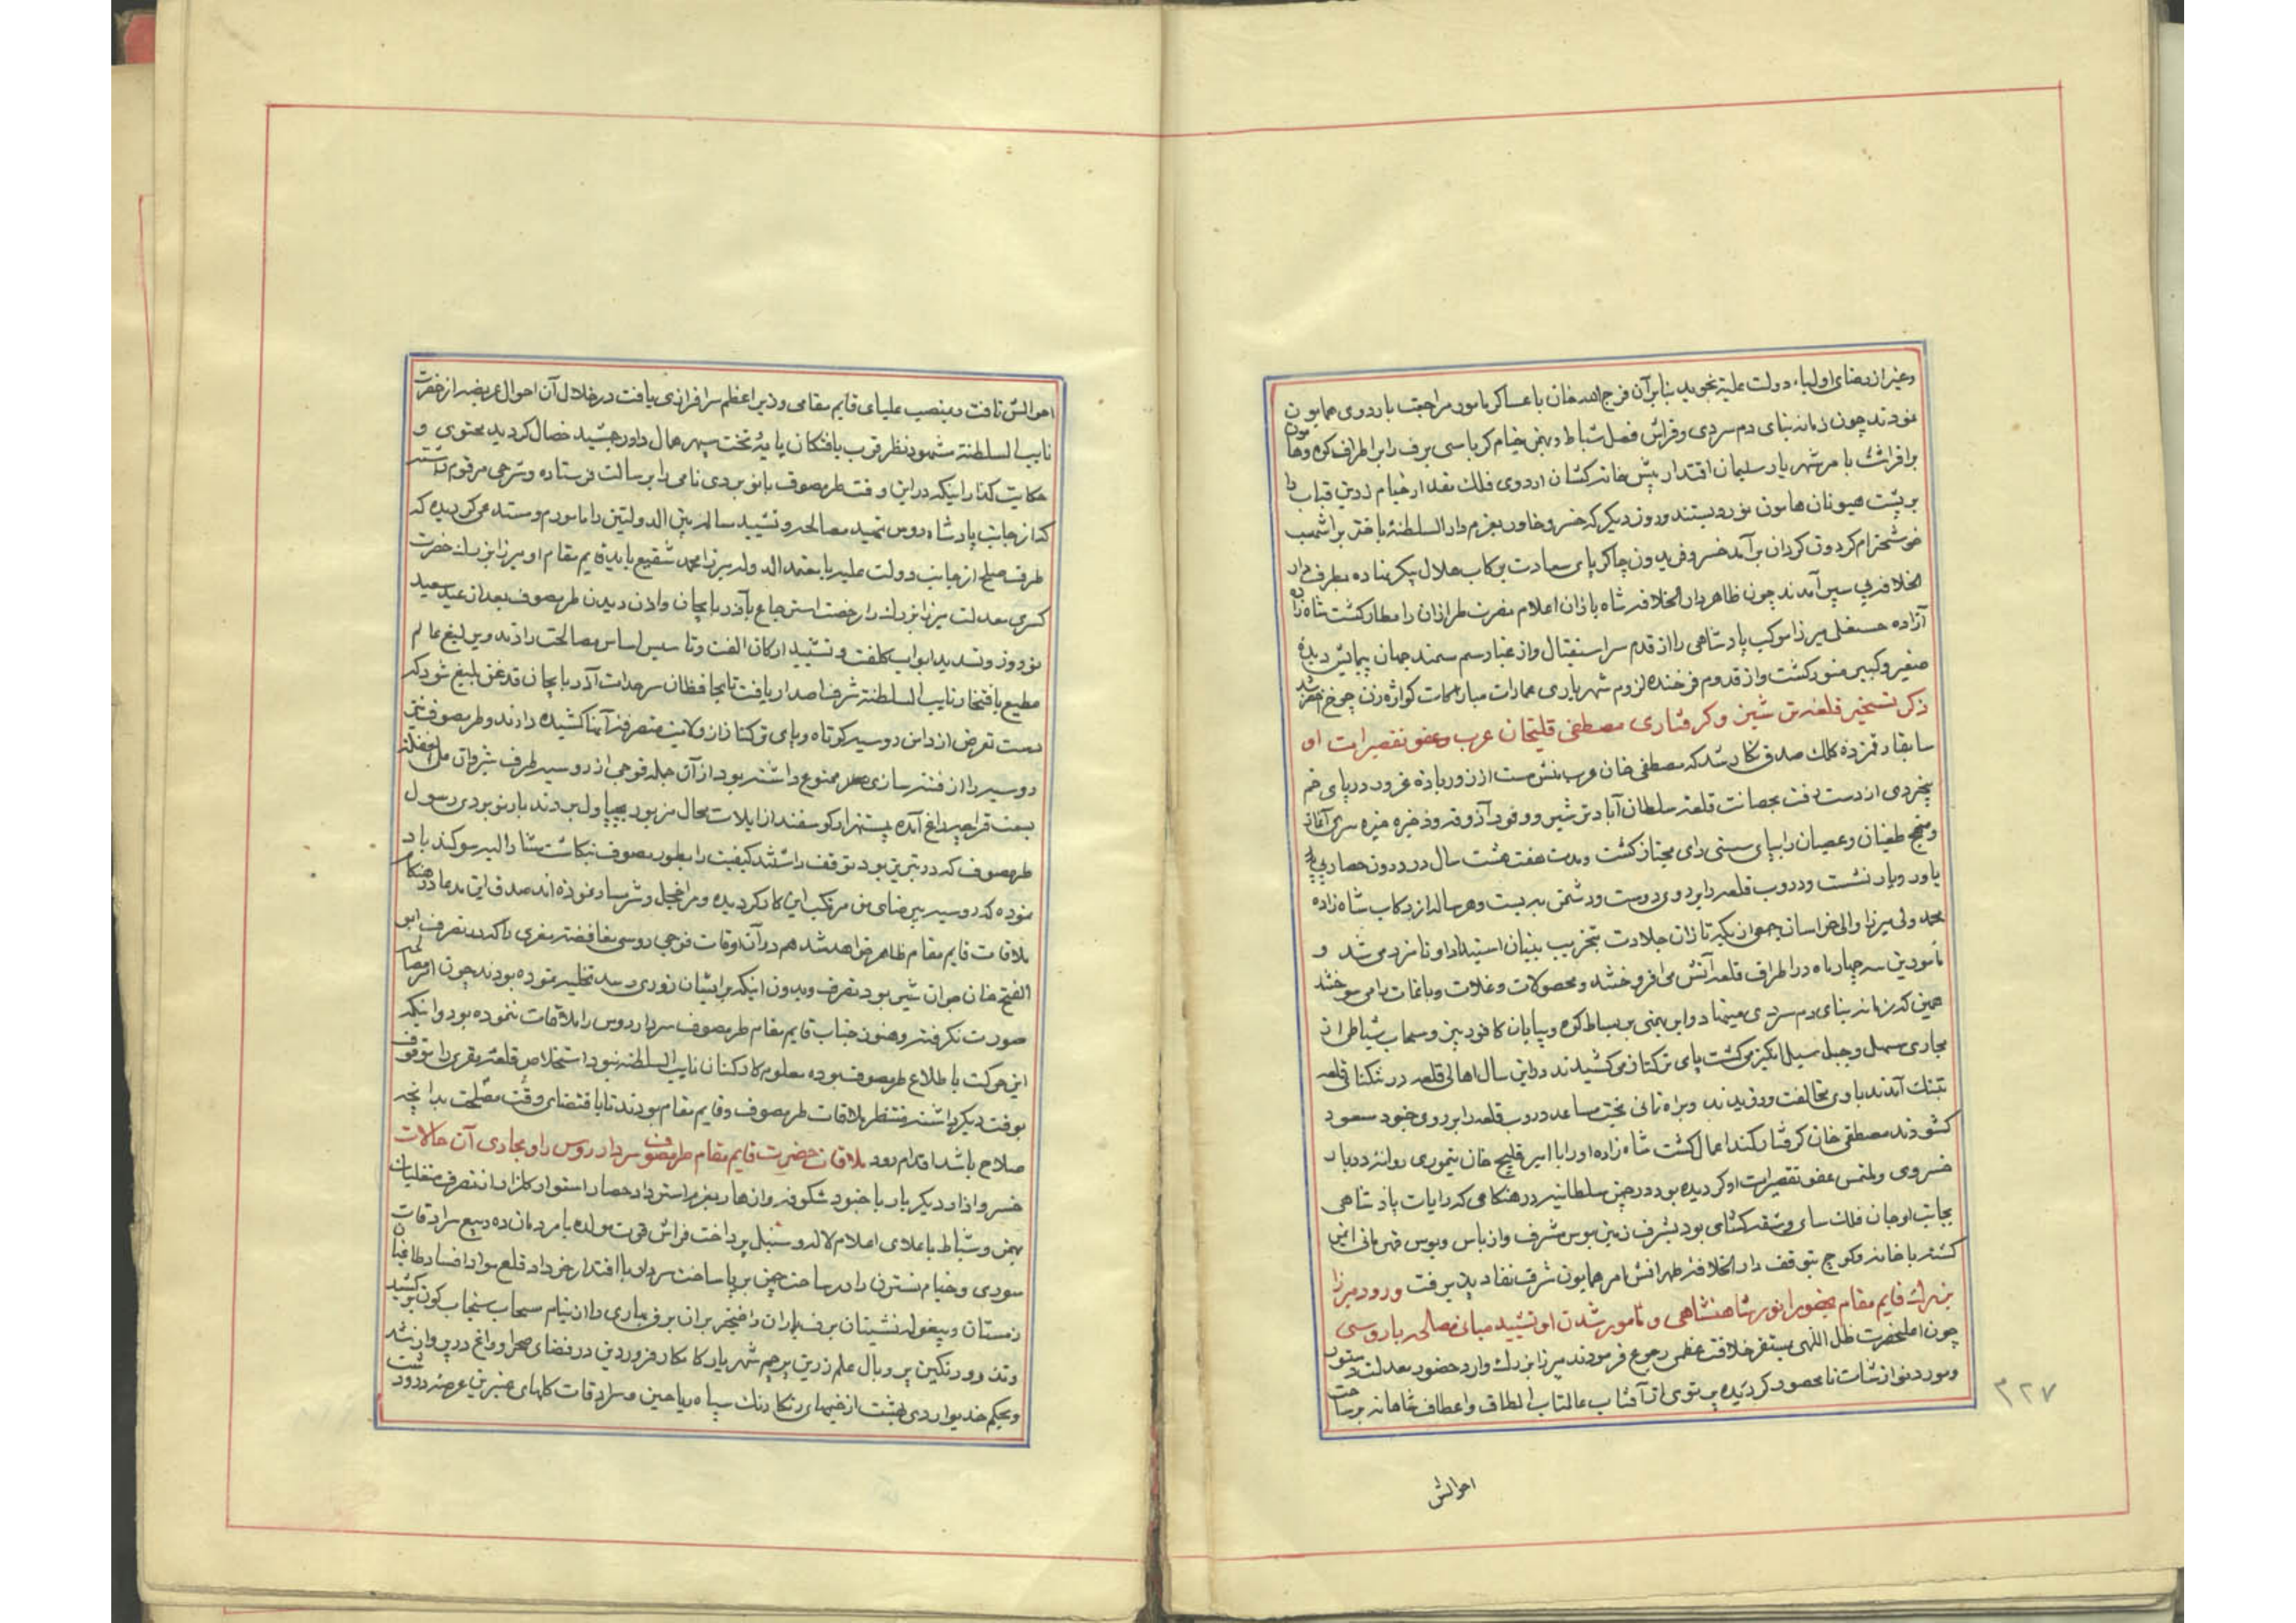 وغیر از رضای اولیاء دولت علیه نجوید بنابرآن فرج الله خان با عساکر مامور مراجعت باردوی همایون
نمودند چون زمانه بنای دم سردی و فراش فصل شباط و بهمن خیام کرباسی برف را بر اطراف کوه وهامون
برافراشت با مر شهریار سلیمان اقتدار پیش خانه کشان اردوی فلک مقدار خیام زرین قباب را
بر پشت هیونان هامون نورد بستند و روز دیگر که خسرو خاور بعزم دار السلطنهٔ باختر بر اشهب
خوشخرام گردون گردان برآمد خسرو فریدون چاکر پای سعادت برکاب هلال پیکر نهاده بطرف دار
الخلافه پی سپر آمدند چون ظاهر دار الخلافه شاه باذان اعلام نصرت طرازان را مطار گشت شاه زاده
آزاده حسنعلی میرزا موکب پادشاهی را از قدم سر استقبال و از غبار سم سمند جهان پیمایش دیده
صغیر و کبیر منور گشت و از قدوم فرخنده لزوم شهریاری عمارات مبارکات کواژه زن چرخ اخضر شد
ذکر تسخیر قلعه ترشیز و گرفتاری مصطفی قلیخان عرب و عفو تقصیرات او
سابقا رقمزده کلک صدق نگار شد که مصطفی خان عرب منش مست از زور باده غرور در پای خم
بیخردی از دست رفت بحصانت قلعه سلطان آباد ترشیز و وفور آذوقه و ذخیره خیره سری آغاز
و منهج طغیان و عصیان را بپای سستی رای مجتاز گشت و مدت هفت هشت سال در درون حصار بی
یاور و یار نشست و دروب قلعه را بروی دوست و دشمن بر بست و هر ساله از رکاب شاه زاده
محمد ولی میرزا والی خراسان جمعی از یکه تازان جلادت بتخریب بنیان استبداد او نامزد می شد و
مأمورین سه چهار ماه در اطراف قلعه آتش می افروختند و محصولات و غلات و باغات را می سوختند
همین که زمانه بنای دم سردی مینهاد و ابر بهمنی بر بساط کوه و بیابان کافور بیز و سحاب شباطی از
مجاری سهل و جبل سیل انگیز می گشت پای ترکتاز می کشیدند در این سال اهالی قلعه در تنگنای قلعه
بتنگ آمدند با وی مخالفت ورزیدند و براه نمائی بخت مساعد دروب قلعه را بر روی جنود مسعود
گشودند مصطفی خان گرفتار کمند اعمال گشت شاه زاده او را با امیر قلیچ خان تیموری روانهٔ دربار
خسروی و ملتمس عفو تقصیرات او گردیده بود در چمن سلطانیه در هنگامی که رایات پادشاهی
بجانب اوجان فلک سای و شقه گشای بود بشرف زمین بوس مشرف و از باس و بوس قهرمانی ایمن
گشته با خانه و کوچ بتوقف دار الخلافه طهرانش امر همایون شرف نفاد پذیرفت ورود میرزا
بزرگ قایم مقام بحضور انور شاهنشاهی و مأمور شدن او بتشیید مبانی مصالحه با روسی
چون اعلیحضرت ظل اللهی بمستقر خلافت عظمی رجوع فرمودند میرزا بزرگ وارد حضور معدلت دستور
و مورد نوازشات نامحصور گردیده پرتوی از آفتاب عالمتاب الطاف و اعطاف شاهانه بر ساحت
۳۲۷
احوالش
احوالش تافت و بمنصب علیای قایم مقامی وزیر اعظم سرافرازی یافت در خلال آن احوال عریضه از حضرت
نایب السلطنة مشهود نظر قرب یافتگان پایهٔ تخت سپهر همال داور جمشید خصال گردید محتوی و
حکایت گذار اینکه در این وقت طرمصوف بانو بردی نامی را برسالت فرستاده و شرحی مرقوم داشته
که از جانب پادشاه روس تمهید مصالحه و تشیید مسالمه بین الدولتین را مامورم و مستدعی گردیده که
طرف صلح از جانب دولت علیه یا معتمد الدوله میرزا محمد شفیع یا بدو قایم مقام او میرزا بزرگ حضرت
کسری معدلت میرزا بزرگ را رخصت استرجاع بآذربایجان و اذن دیدن طرمصوف بعد از عید سعید
نوروز و تسدید ابواب کلفت و تشیید ارکان الفت و تأسیس اساس مصالحت دادند و یرلیغ عالم
مطیع بافتخار نایب السلطنة شرف اصدار یافت تا بحافظان سرحدات آذربایجان قدغن بلیغ شود که
دست تعرض از دامن روسیه کوتاه و پای ترکتاز از ولایت متصرفه آنها کشیده دارند و طرمصوف نیز
روسیه را از فتنه سازی ممنوع داشته بود از آن جمله فوجی از روسیه طرف شیروان علی الغفلة
بسمت قراجه داغ آمده بیست هزار گوسفند از ایلات محال مزبور بچپاول بردند بانو بردی رسول
طرمصوف که در تبریز بود توقف داشتند کیفیت را بطرمصوف نگاشت مشار الیه سوگند یاد
نموده که روسیه بیرضای من مرتکب این کار گردیده و مرا خجل و شرمسار نموده اند صدق این مدعا در هنگام
ملاقات قایم مقام ظاهر خواهد شد هم در آن اوقات فوجی روسی مغافصة مقری را که در تصرف ابو
الفتح خان جوان شیر بود تصرف و بدون اینکه بر ایشان زوری رسد تخلیه نموده بودند چون امر مصالحه
صورت نگرفته و هنوز جناب قایم مقام طرمصوف سردار روس را ملاقات ننموده بود و اینکه
این حرکت با طلاع طرمصوف بوده معلوم کارکنان نایب السلطنه نبود استخلاص قلعهٔ مقری را موقوف
بوقت دیگر داشته منتظر ملاقات طرمصوف و قایم مقام بودند تا باقتضای وقت و مصلحت بدانچه
صلاح باشد اقدام رود ملاقات حضرت قایم مقام طرمصوف سردار روس را و مجاری آن حالات
خسرو اذار دیگر بار با جنود شکوفه و ازهار بعزم استرداد حصار استوار گلزار از تصرف متغلبان
بهمن و شباط با علای اعلام لاله و سنبل پرداخت فراش قوت مولده بامر دمان ده ربیع سرادقات
سوری و خیام نسترن را در ساحت چمن بر پا ساخت سردار با اقتدار خرداد قلع مواد افساد طاغیان
زمستان و بیغوله نشینان برف و باران را خنجر بران برق بهاری را از نیام سحاب سنجاب گون برکشید
وتذرو رنگین پر و بال علم زرین پرچم شهریار کامکار فروردین در فضای صحرا و راغ در پرواز شد
و بحکم خدیو اردی بهشت از خیمهای رنگارنگ سپاه ریاحین و سرادقات گلهای عنبرین عرصه در و دشت